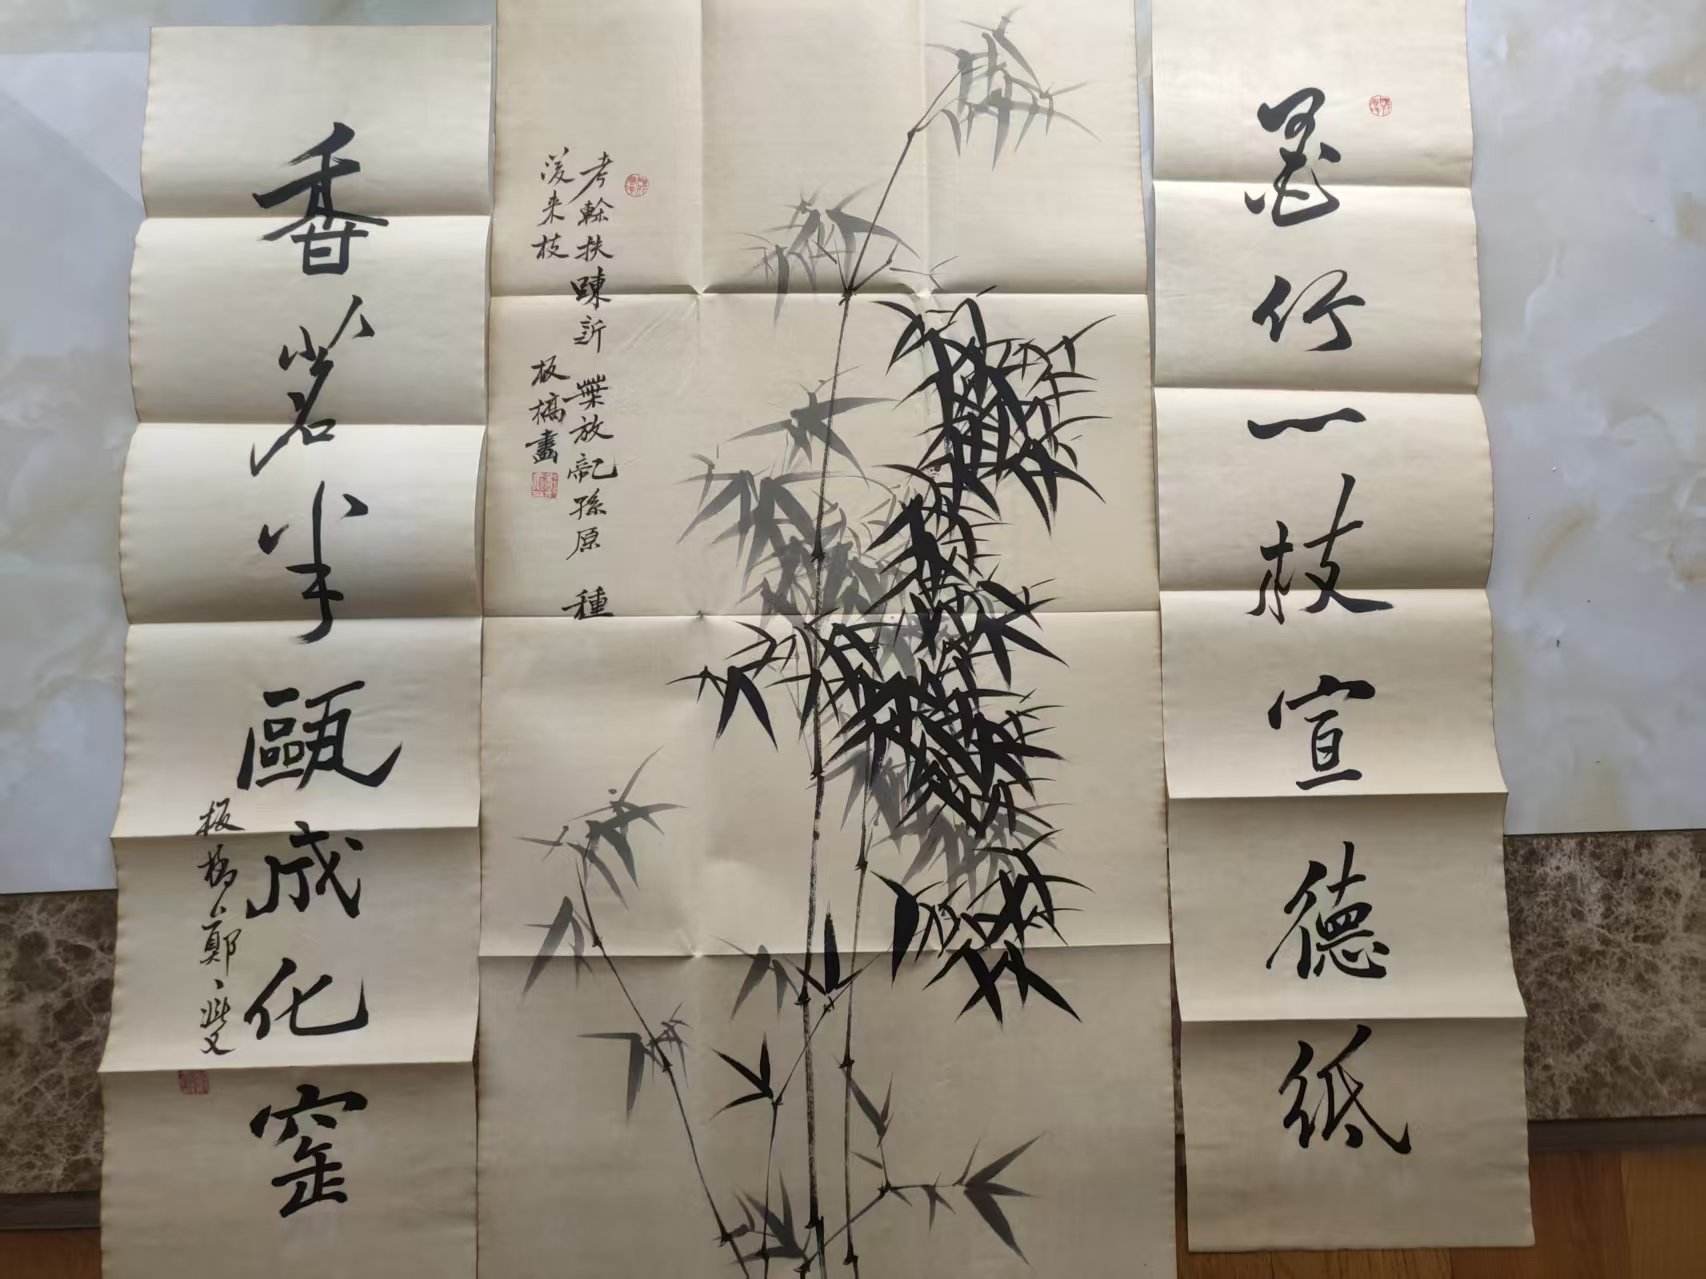 墨竹一枝宣德纸
老榦扶疎新葉放龍孫原種
後来枝
板橋畫
香茗半甌成化窑
板橋鄭燮